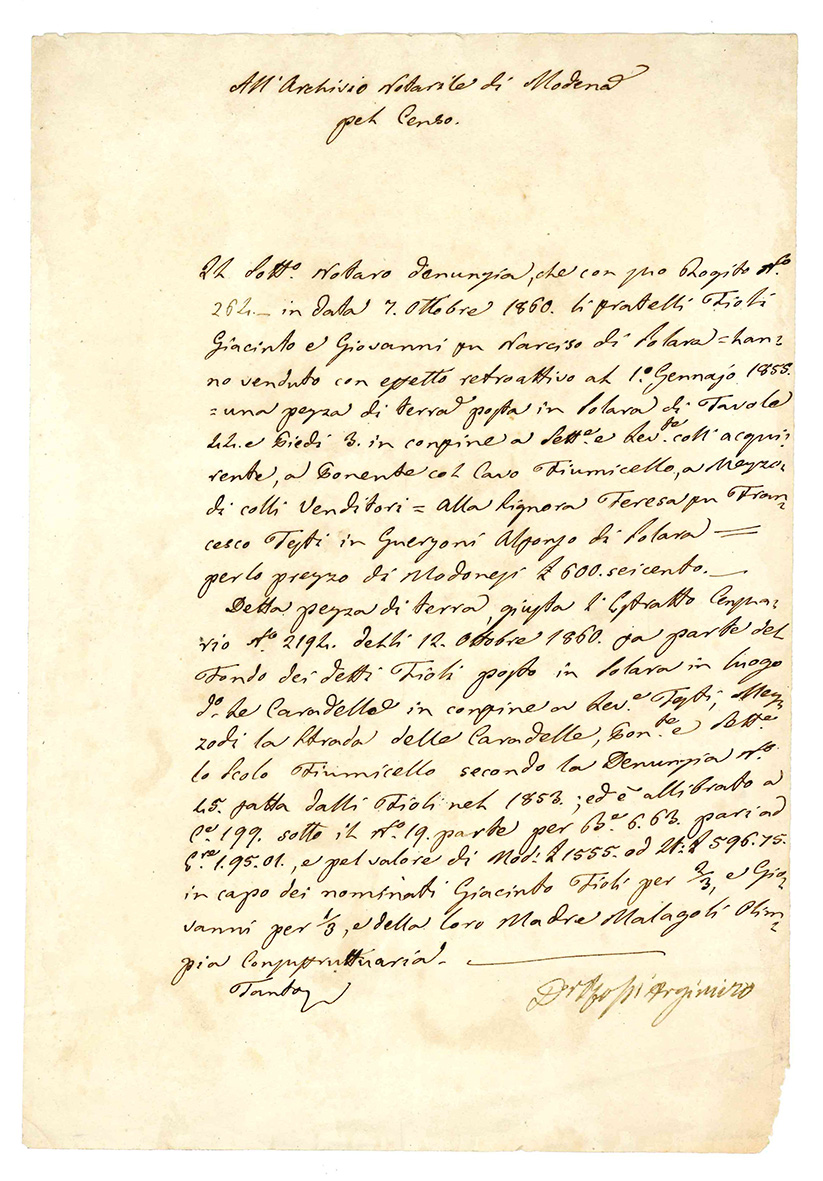 All'Archivio Notarile di Modena
pel Censo.
Il Sott.o Notaro denunzia, che con suo Rogito N.o
262.— in data 7. Ottobre 1860. li fratelli Fioli
Giacinto e Giovanni fu Narciso di Solara = han=
no venduto con effetto retroattivo al 1.o Gennajo 1855.
= una pezza di terra posta in Solara di Tavole
44. e Piedi 3. in confine a Sett.e e Lev.te coll'acqui=
rente, a Ponente col Cavo Fiumicello, a Mezzo=
di colli Venditori = alla Signora Teresa fu Fran=
cesco Testi in Guerzoni Alfonso di Solara =
per lo prezzo di Modonesi £ 600. seicento.—
Detta pezza di terra, giusta l'Estratto Censua=
rio N.o 2194. delli 12. Ottobre 1860. fa parte del
Fondo dei detti Fioli posto in Solara in luogo
d.o Le Caradelle in confine a Lev.e Testi, Mez=
zodi la Strada delle Caradelle, Pon.te e Sett.e
lo Scolo Fiumicello secondo la Denunzia N.o
45. fatta dalli Fioli nel 1853.; ed è allibrato a
C.e 199. sotto il N.o 19. parte per B.e 6.63. pari ad
E.re 1.95.01., e pel valore di Mod: £ 1555. od It: £ 596.75.
in capo dei nominati Giacinto Fioli per 2/3, e Gio=
vanni per 1/3, e della loro Madre Malagoli Olim=
pia Conusufruttuaria. —
Tanto
D.r Rossi Argimiro